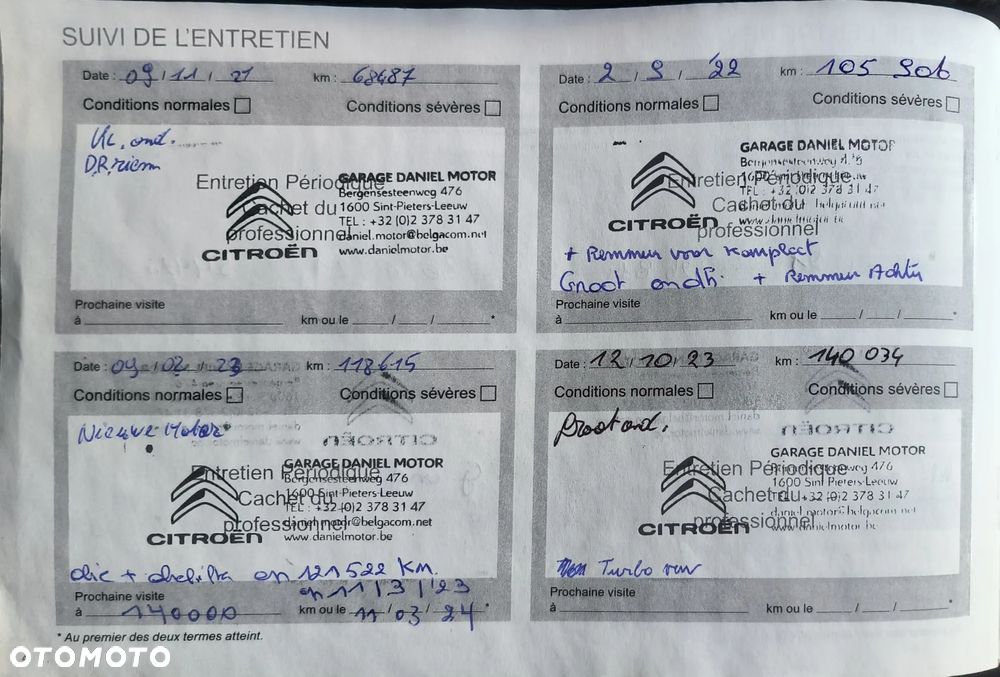 SUIVI DE L'ENTRETIEN
Date : 09 / 11 / 21 km : 68487
Conditions normales Conditions sévères
Kl. ond.
D.R.riem
Entretien Périodique
Cachet du
professionnel
CITROËN
GARAGE DANIEL MOTOR
Bergensesteenweg 476
1600 Sint-Pieters-Leeuw
TEL : +32 (0)2 378 31 47
daniel.motor@belgacom.net
www.danielmotor.be
Prochaine visite
à km ou le / / *
Date : 2 / 9 / '22 km : 105 906
Conditions normales Conditions sévères
Entretien Périodique
Cachet du
professionnel
CITROËN
GARAGE DANIEL MOTOR
TEL : +32 (0)2 378 31 47
+ Remmen voor kompleet
Groot + Remmen Achter
Prochaine visite
à km ou le / / *
Date : 09 / 02 / 23 km : 118615
Conditions normales Conditions sévères
Nieuwe Motor
Entretien Périodique
Cachet du
professionnel
CITROËN
GARAGE DANIEL MOTOR
Bergensesteenweg 476
1600 Sint-Pieters-Leeuw
TEL : +32 (0)2 378 31 47
daniel.motor@belgacom.net
www.danielmotor.be
olie + 121522 KM.
11 / 3 / 23
Prochaine visite
à 140000 km ou le 11 / 03 / 24 *
Date : 12 / 10 / 23 km : 140 034
Conditions normales Conditions sévères
Groot ond.
Entretien Périodique
Cachet du
professionnel
CITROËN
GARAGE DANIEL MOTOR
1600 Sint Pieters-Leeuw
TEL : +32 (0)2 378 31 47
Turbo
Prochaine visite
à km ou le / / *
* Au premier des deux termes atteint.
OTOMOTO